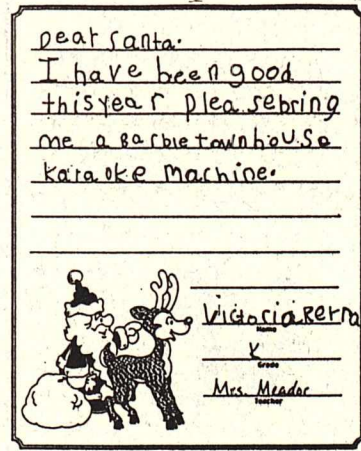 Dear Santa.
I have been good
this year Please bring
me a Barbie townhouse
karaoke machine.
Victoria Rerra
Name
K
Grade
Mrs. Meador
Teacher